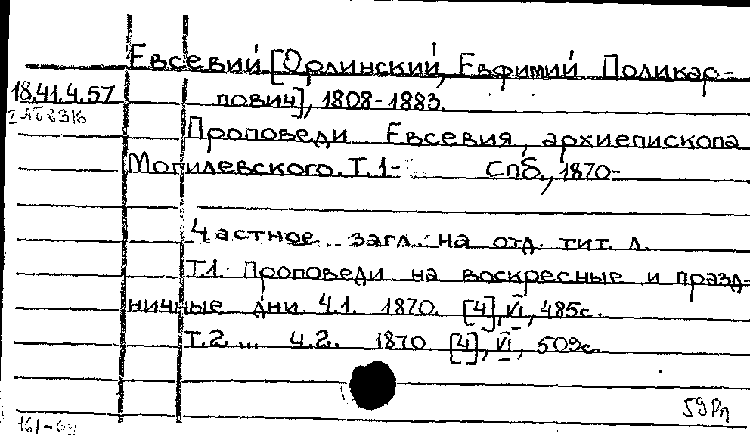 Евсевий [Орлинский, Евфимий Поликар-
18.41.4.57 пович], 1808-1883.
Проповеди Евсевия, архиепископа
Могилевского. Т.1- Спб., 1870-
Частное загл. на отд. тит. л.
Т.1. Проповеди на воскресные и празд-
ничные дни ч.1. 1870. [4], VI, 485с.
Т.2... ч.2. 1870 [4], VI, 509с.
59Рл